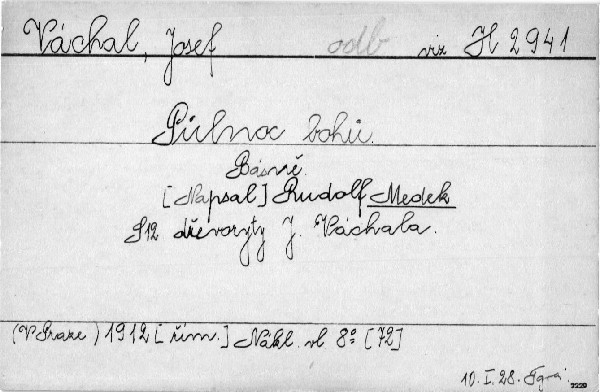 Váchal, Josef odb viz H 2941
Půlnoc bohů.
Básně
[Napsal] Rudolf Medek
S 12 dřevoryty J. Váchala.
(V Praze) 1912 [řím.] Nákl. vl. 8° [72]
10.I.28.